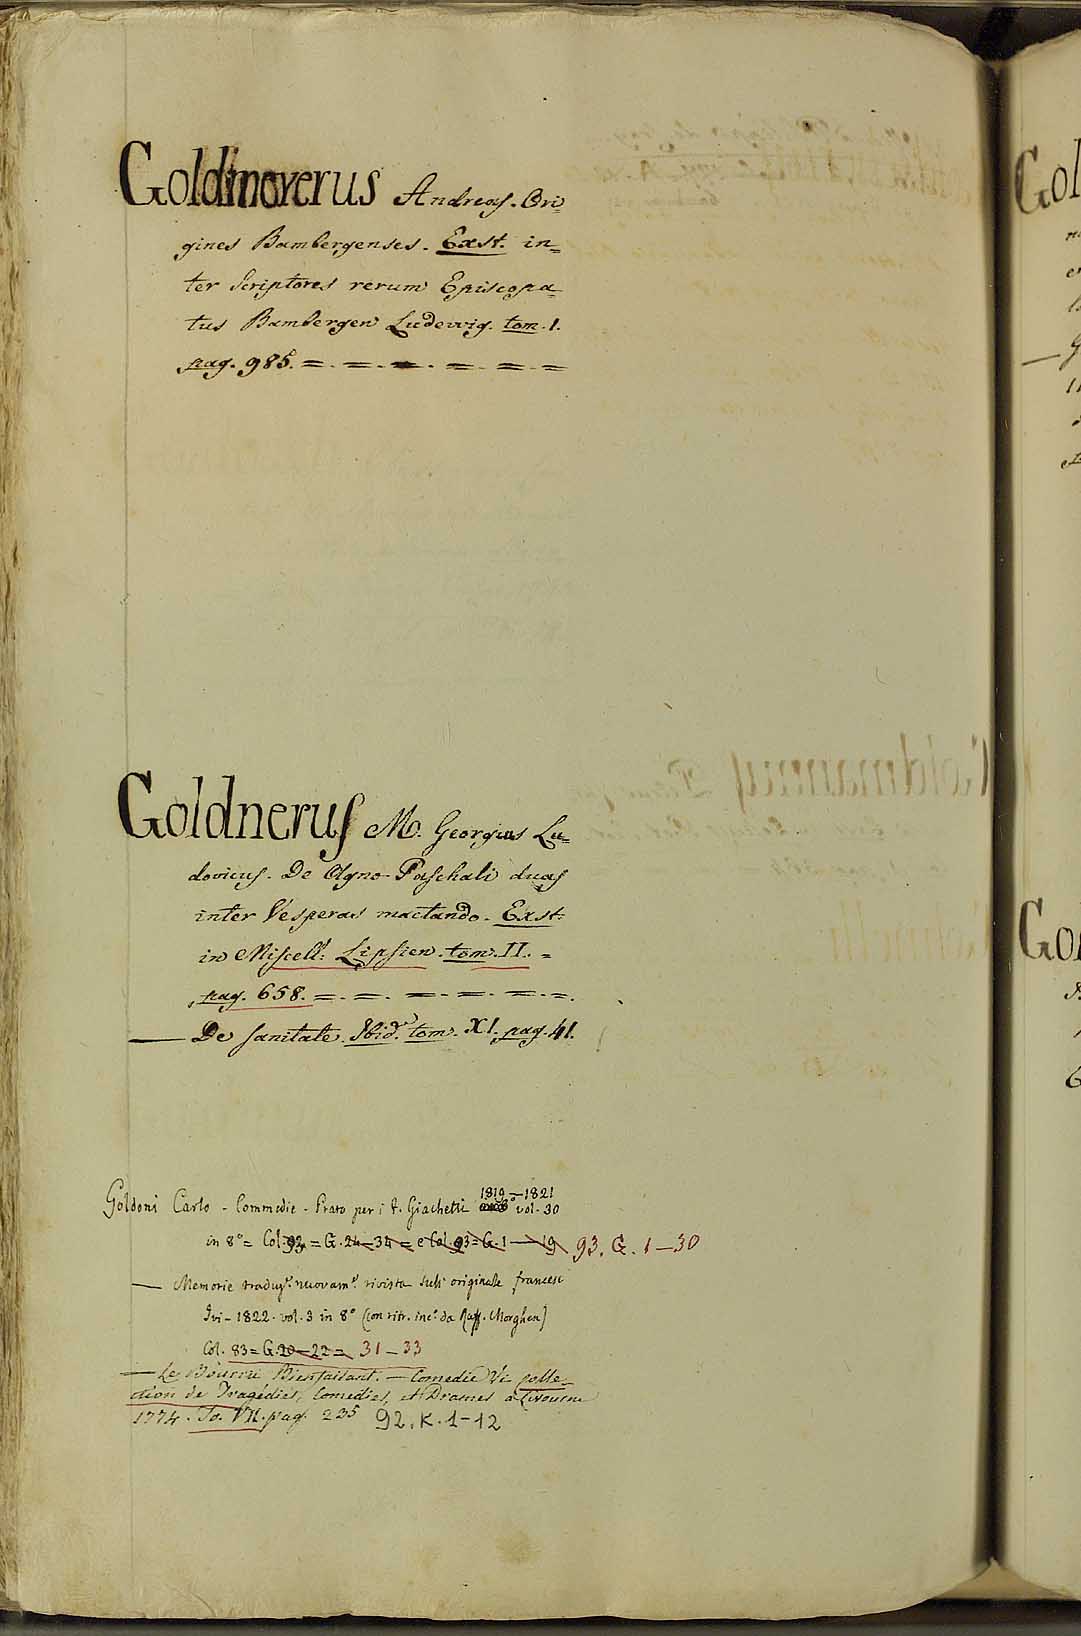 Goldmoverus Andreas. Ori=
gines Bambergenses. Exst. in=
ter Scriptores rerum Episcopa=
tus Bambergen Ludewig. tom. I.
pag. 985. = . = . = . = . = . =
Goldnerus M. Georgius Lu=
dovicus. De Agno Paschali duas
inter Vesperas mactando. Exst:
in Miscell: Lipsien. tom. II. =
pag. 658. = . = . = . = . = . =.
— De sanitate. Ibid. tom. XI. pag. 41.
1819 — 1821
Goldoni Carlo - Commedie - Prato per i f. Giachetti vol. 30
in 8° = Col. 92 = G. 24 — 34 = e Col. 93 = G. 1 — 19 93. G. 1 — 30
— Memorie traduz.e nuovam.e rivista sull' originale francese
Ivi - 1822. vol. 3 in 8° (con ritr. inc.° da Raff. Morghen)
Col. 83 = G. 20 — 22 = 31 — 33
— Le Bourru Bienfaisant. — Comedie Vi colle=
ction de Tragedies, Comedies, et Drames a Livourne
1774. To. VII. pag. 235 92. K. 1 - 12